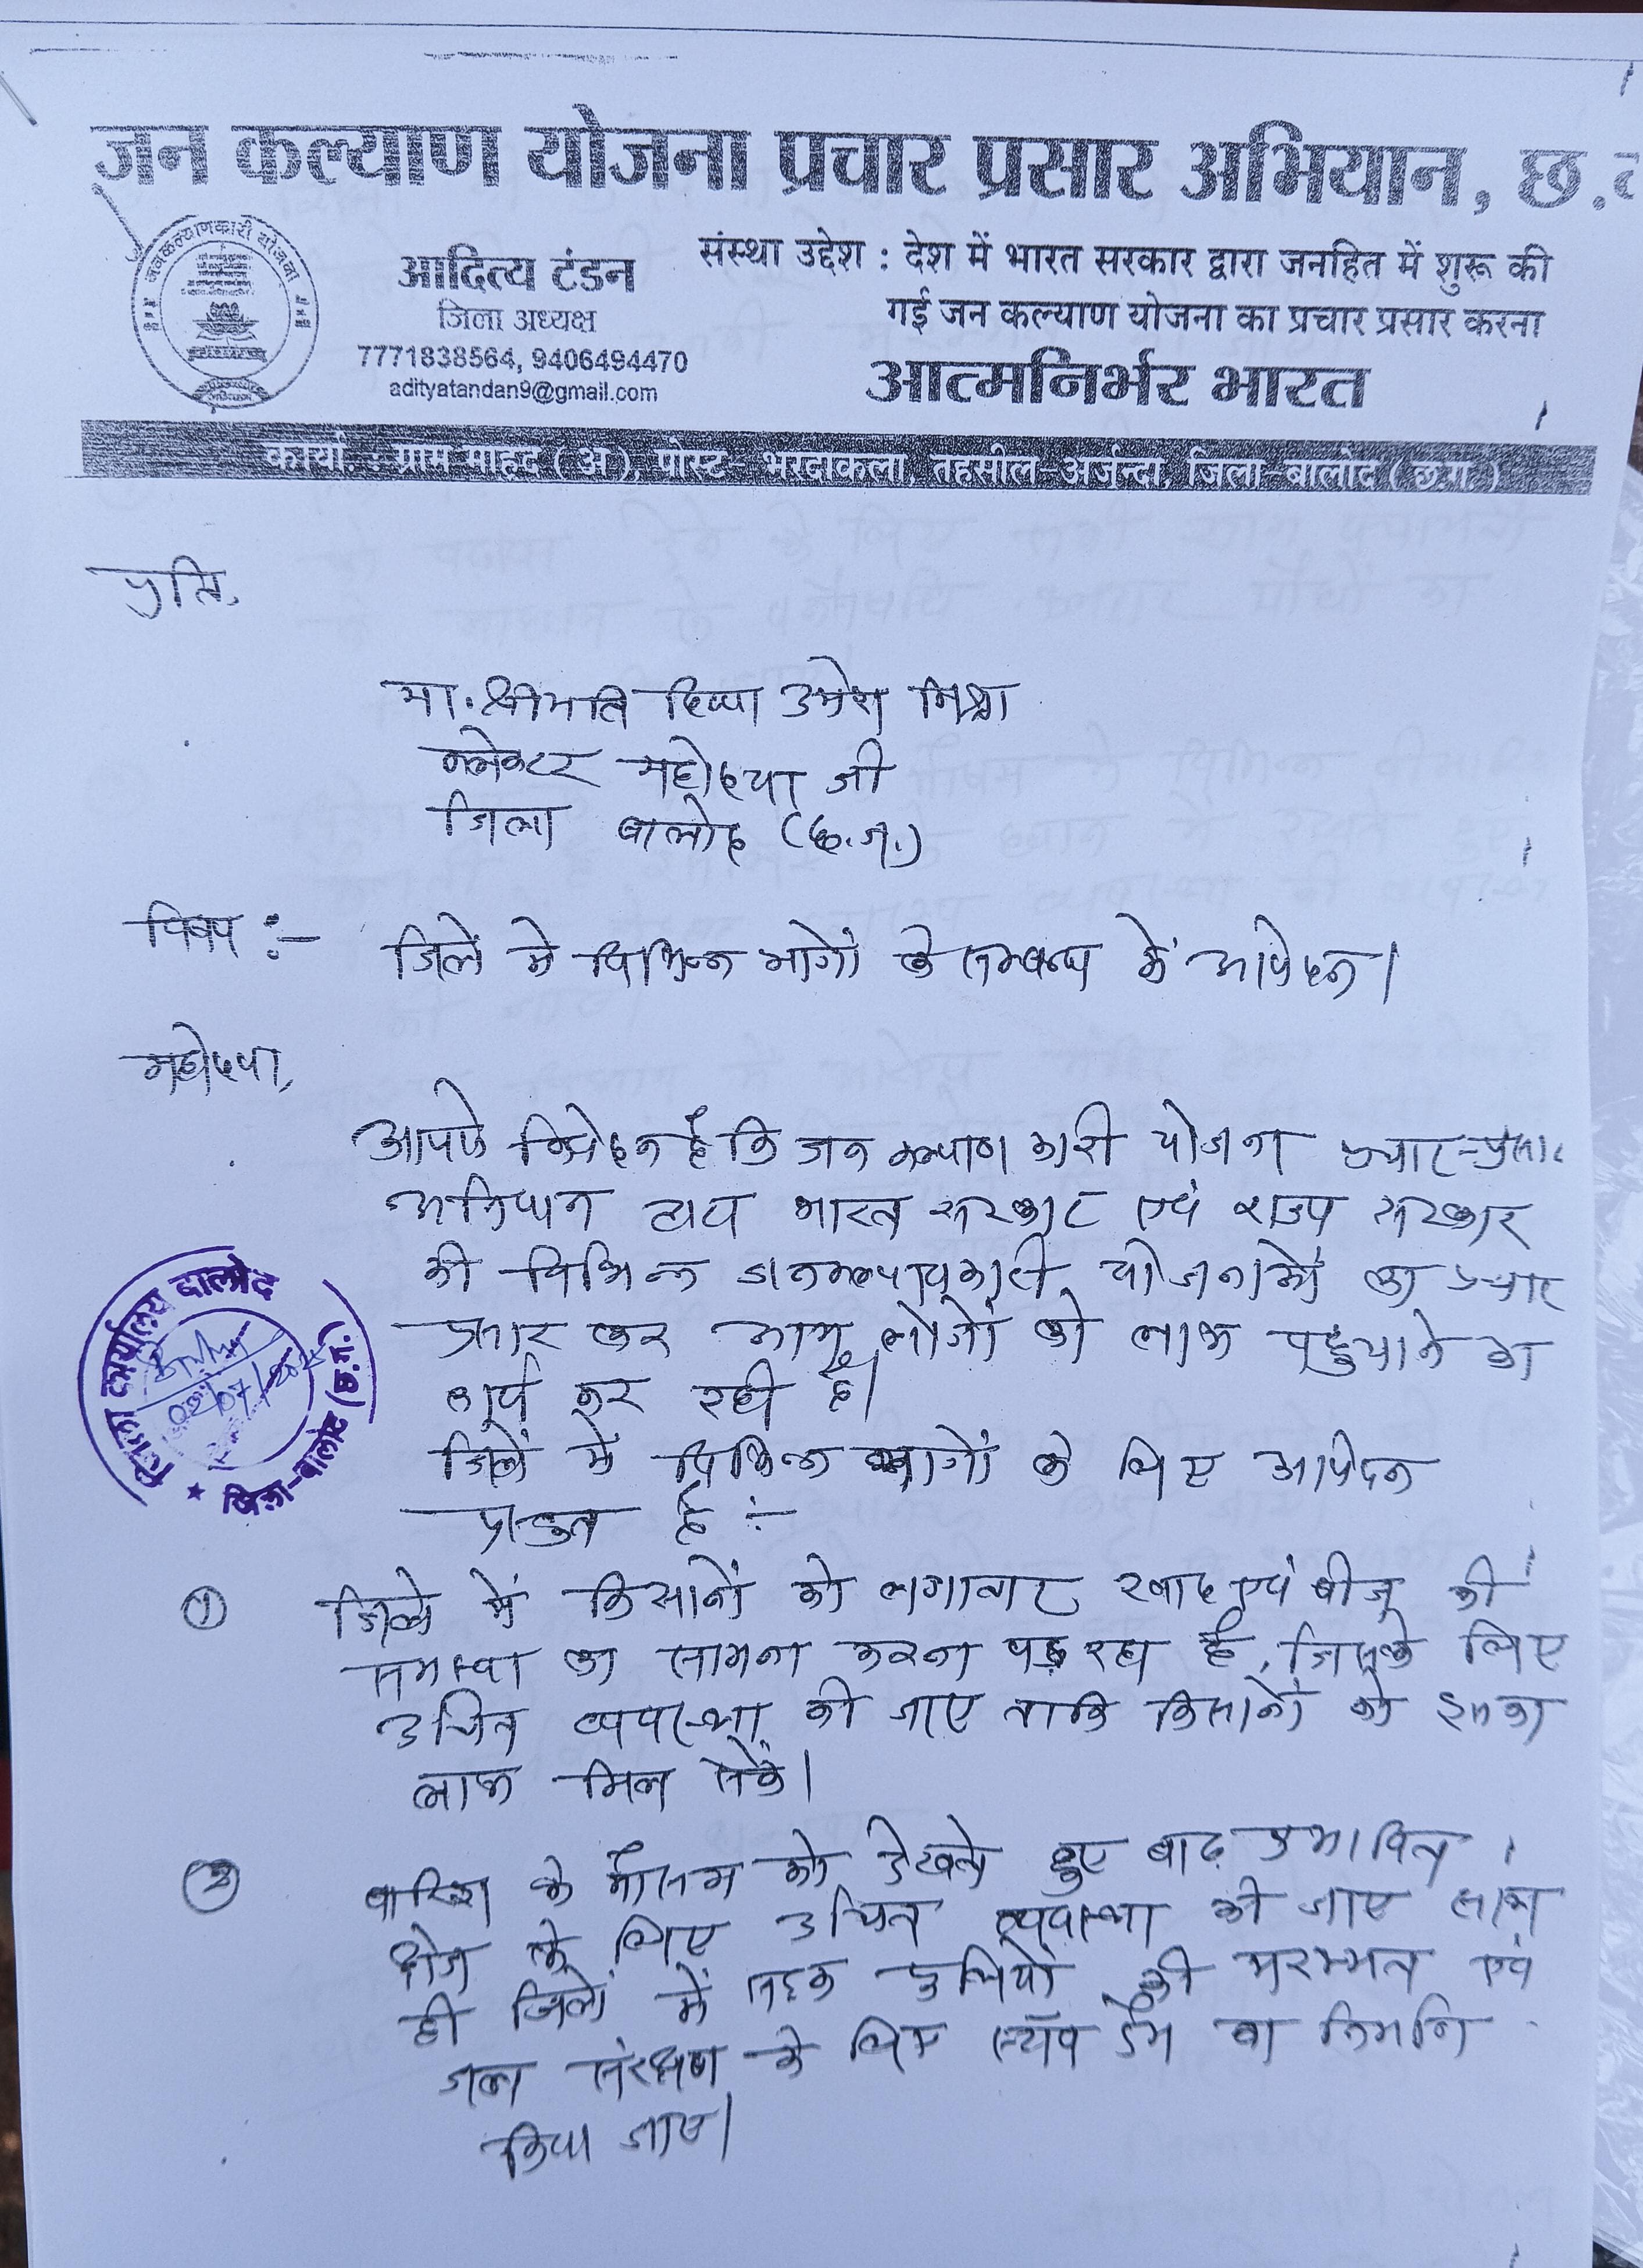 जन कल्याण योजना प्रचार प्रसार अभियान, छ.
जनकल्याणकारी योजना
आदित्य टंडन
जिला अध्यक्ष
7771838564, 9406494470
adityatandan9@gmail.com
संस्था उद्देश : देश में भारत सरकार द्वारा जनहित में शुरू की
गई जन कल्याण योजना का प्रचार प्रसार करना
आत्मनिर्भर भारत
कार्या. : ग्राम-माहूद ( अ ), पोस्ट- भरदाकला, तहसील-अर्जुन्दा, जिला-बालोद ( छ.ग. )
प्रति,
मा. श्रीमति दिव्या उमेश मिश्रा
कलेक्टर महोदया जी
जिला बालोद (छ.ग.)
विषय :- जिले में विभिन्न मांगों के सम्बन्ध में आवेदन।
महोदया,
आपसे निवेदन है कि जन कल्याणकारी योजना प्रचार-प्रसार
अभियान भारत सरकार एवं राज्य सरकार
की विभिन्न जनकल्याणकारी योजनाओं का प्रचार
प्रसार कर आम लोगों को लाभ पहुचाने का
कार्य कर रही है।
जिलें में विभिन्न मांगों के लिए आवेदन
प्रस्तुत है :-
जिला कार्यालय बालोद
02/07/
★ जिला-बालोद (छ.ग.)
① जिले में किसानों को लगातार खाद एवं बीज की
समस्या का सामना करना पड़ रहा है, जिसके लिए
उचित व्यवस्था की जाए ताकि किसानों को इसका
लाभ मिल सकें।
② बारिश के मौसम को देखते हुए बाढ़ प्रभावित
क्षेत्र के लिए उचित व्यवस्था की जाए साथ
ही जिले में सड़क पुलियों की मरम्मत एवं
जल संरक्षण के लिए स्टॉप डेम का निर्माण
किया जाए।